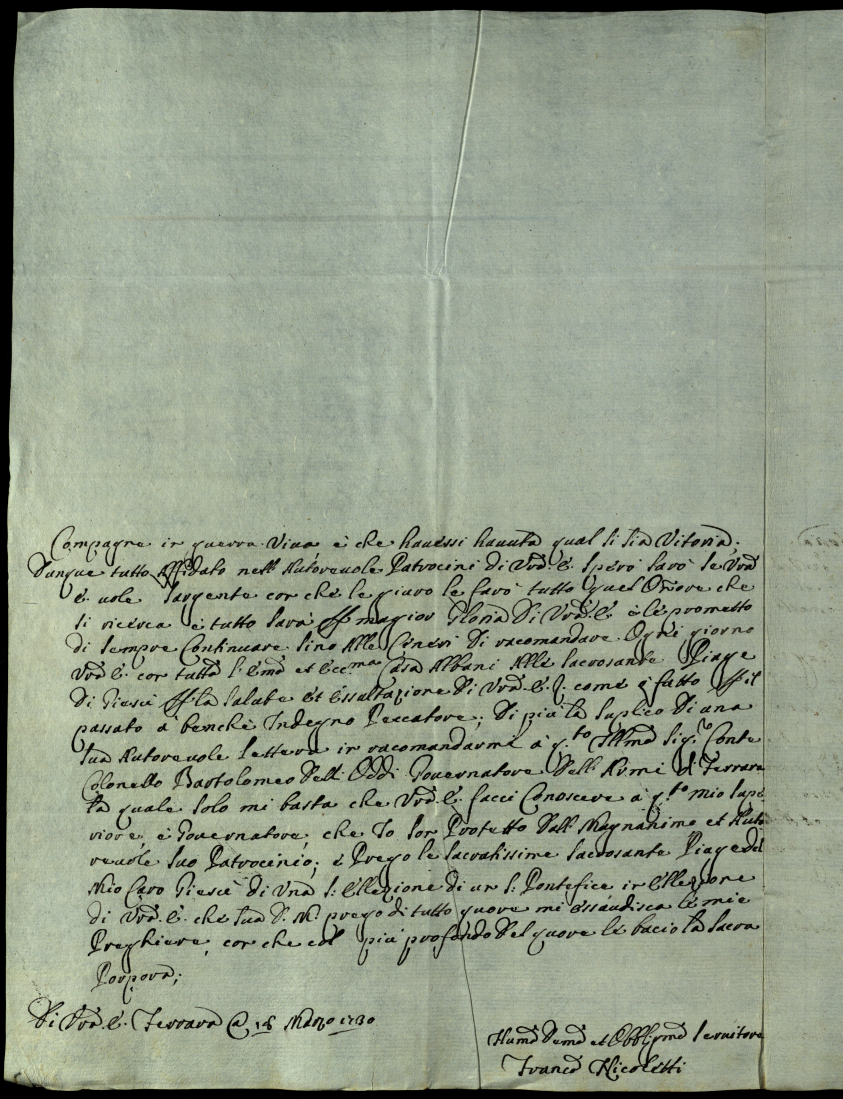 Compagne in guerra viua è che hauessi hauuta qual si sia Vitoria;
Dunque tutto Affidato nell Autoreuole Patrocini di Vrã. E. sperò sarò se Vrã
E. uole sargente con che le giuro le farò tutto quel Onore che
si ricerca è tutto sarà per magior Gloria Di Vrã. E. è le prometto
di sempre Continuare sino Alle Ceneri Di racomandare Ogni giorno
Vrã E. con tutta l. Emã et Ecc.ma Casa Albani Alle sacrosante Piage
Di Giesù per la salute et essaltazione Di Vrã. E. come ò fatto per il
passato a benche Indegno Peccatore; Di più la suplico Di una
sua Autoreuole lettera in racomandarmi à q.to Illmo Sig.r Conte
Colonello Bartolomeo Dell Oddi Gouernatore Dell Armi di Ferrara
la quale solo mi basta che Vrã. E. facci Conoscere à q.to mio supe
riore è Gouernatore che Io son Protetto Dall Magnanimo et Auto
reuole suo Patrocinio; è Prego le sacratissime sacrosante Piage del
Mio Caro Giesù di Vna S. Ellezione di un S. Pontefice in Ellezione
di Vrã. E. che sua D. M. prego di tutto quore mi essaudisca le mie
Preghiere con che col più profondo Del quore le bacio la sacra
Porpora;
Di Vrã. E. Ferrara @ 18 Marzo 1730
Humõ Demõ et Obblgmõ seruitore
Francõ Nicoletti